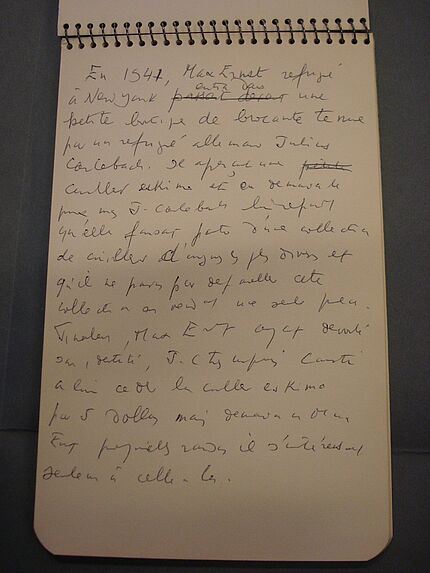 En 1941, Max Ernst refugié
à New York passait devant entra dans une
petite boutique de brocante tenue
par un refugié allemand Julius
Carlebach. Il aperçut une petite
cuiller eskimo et en demanda le
prix mais J. Carlebach lui répond
qu'elle faisait partie d'une collection
de cuillers d'origines les plus divers et
qu'il ne peut pas dépareiller cette
collection en vendant une seule pièce.
Finalement, Max Ernst ayant dévoilé
son identité, J. C. très impressionné consentit
à lui céder la cuiller eskimo
pour 5 dollars mais demanda à Max
Ernst pour quelles raisons il s'intéressait
seulement à celle-là.